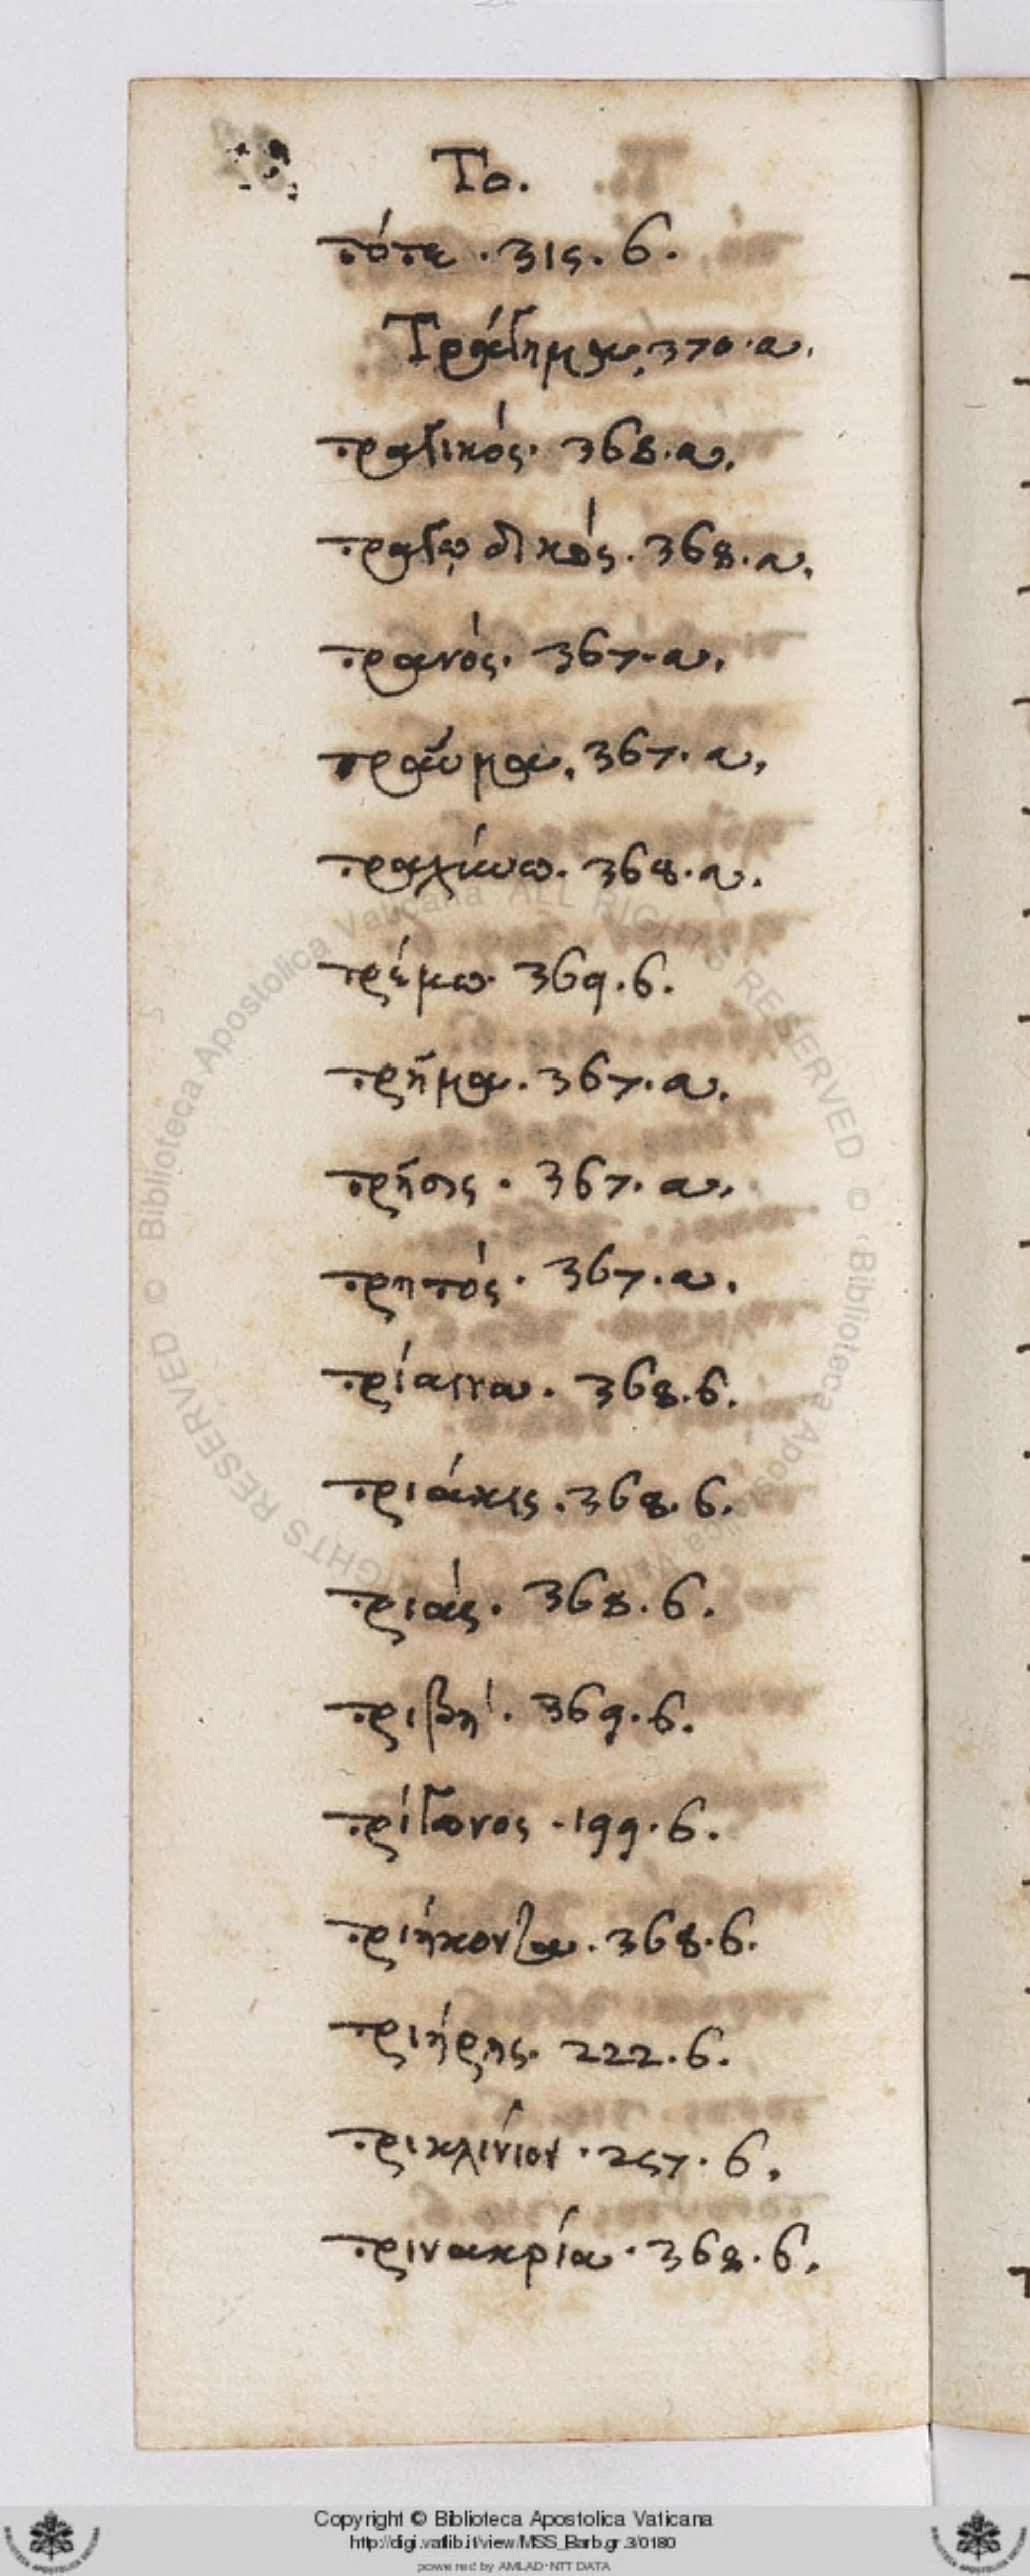 Το.
τότε . 315 . 6 .
Τράγημα . 370 . α .
τραγικός . 368 . α .
τραγῳδικός . 368 . α .
τρανός . 367 . α .
τραῦμα . 367 . α .
τραχύνω . 368 . α .
τρέμω . 369 . 6 .
τρῆμα . 367 . α .
τρῆσις . 367 . α .
τρητός . 367 . α .
τρίαινα . 368 . 6 .
τριάκις . 368 . 6 .
τριάς . 368 . 6 .
τριβή . 369 . 6 .
τρίγωνος . 199 . 6 .
τριήκοντα . 368 . 6 .
τριήρης . 222 . 6 .
τρικλίνιον . 257 . 6 .
τρινακρία . 368 . 6 .
© Biblioteca Apostolica Vaticana ALL RIGHTS RESERVED
Copyright © Biblioteca Apostolica Vaticana
http://digi.vatlib.it/view/MSS_Barb.gr.3/0180
powered by AMLAD-NTT DATA